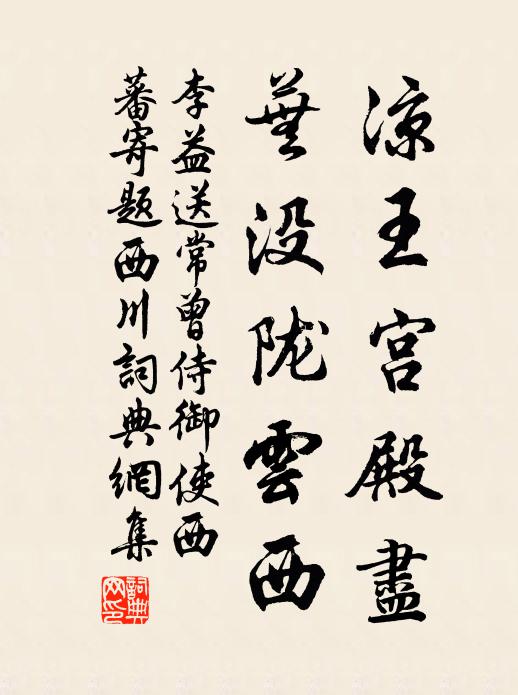 凉王宫殿盡
蕪没陇雲西
李益送常曾侍御使西
蕃寄题西川詞典網集
詞典网印